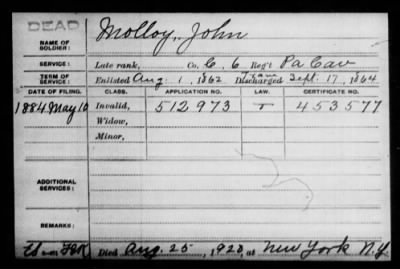 DEAD
NAME OF SOLDIER: Molloy, John
SERVICE: Late rank, Co. C. 6 Reg't Pa Cav
TERM OF SERVICE: Enlisted Aug. 1, 1862 Discharged Sept. 17, 1864
DATE OF FILING. CLASS. APPLICATION NO. LAW. CERTIFICATE NO.
1884 May 10 Invalid, 512973 453577
Widow,
Minor,
ADDITIONAL SERVICES:
REMARKS:
Died Aug 25, 1920, at New York N.Y.